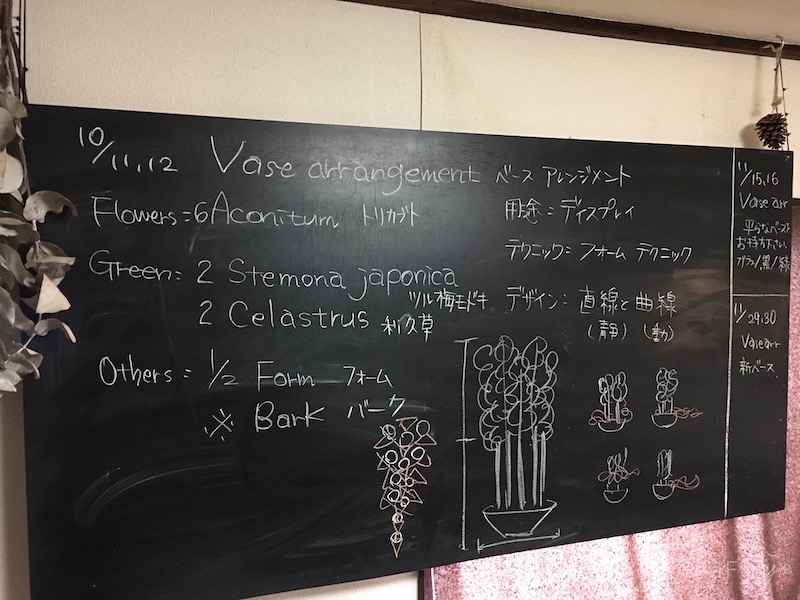 10/11,12 Vase arrangement ベース アレンジメント
Flowers = 6 Aconitum トリカブト
Green = 2 Stemona japonica
ツル梅モドキ
2 Celastrus 利久草
Others = 1/2 Form フォーム
※ Bark バーク
用途 = ディスプレイ
テクニック = フォーム テクニック
デザイン = 直線と曲線
(静) (動)
11/15,16
Vase arr
平らなベースを
お持ち下さい
11/29,30
Vase arr
新ベース